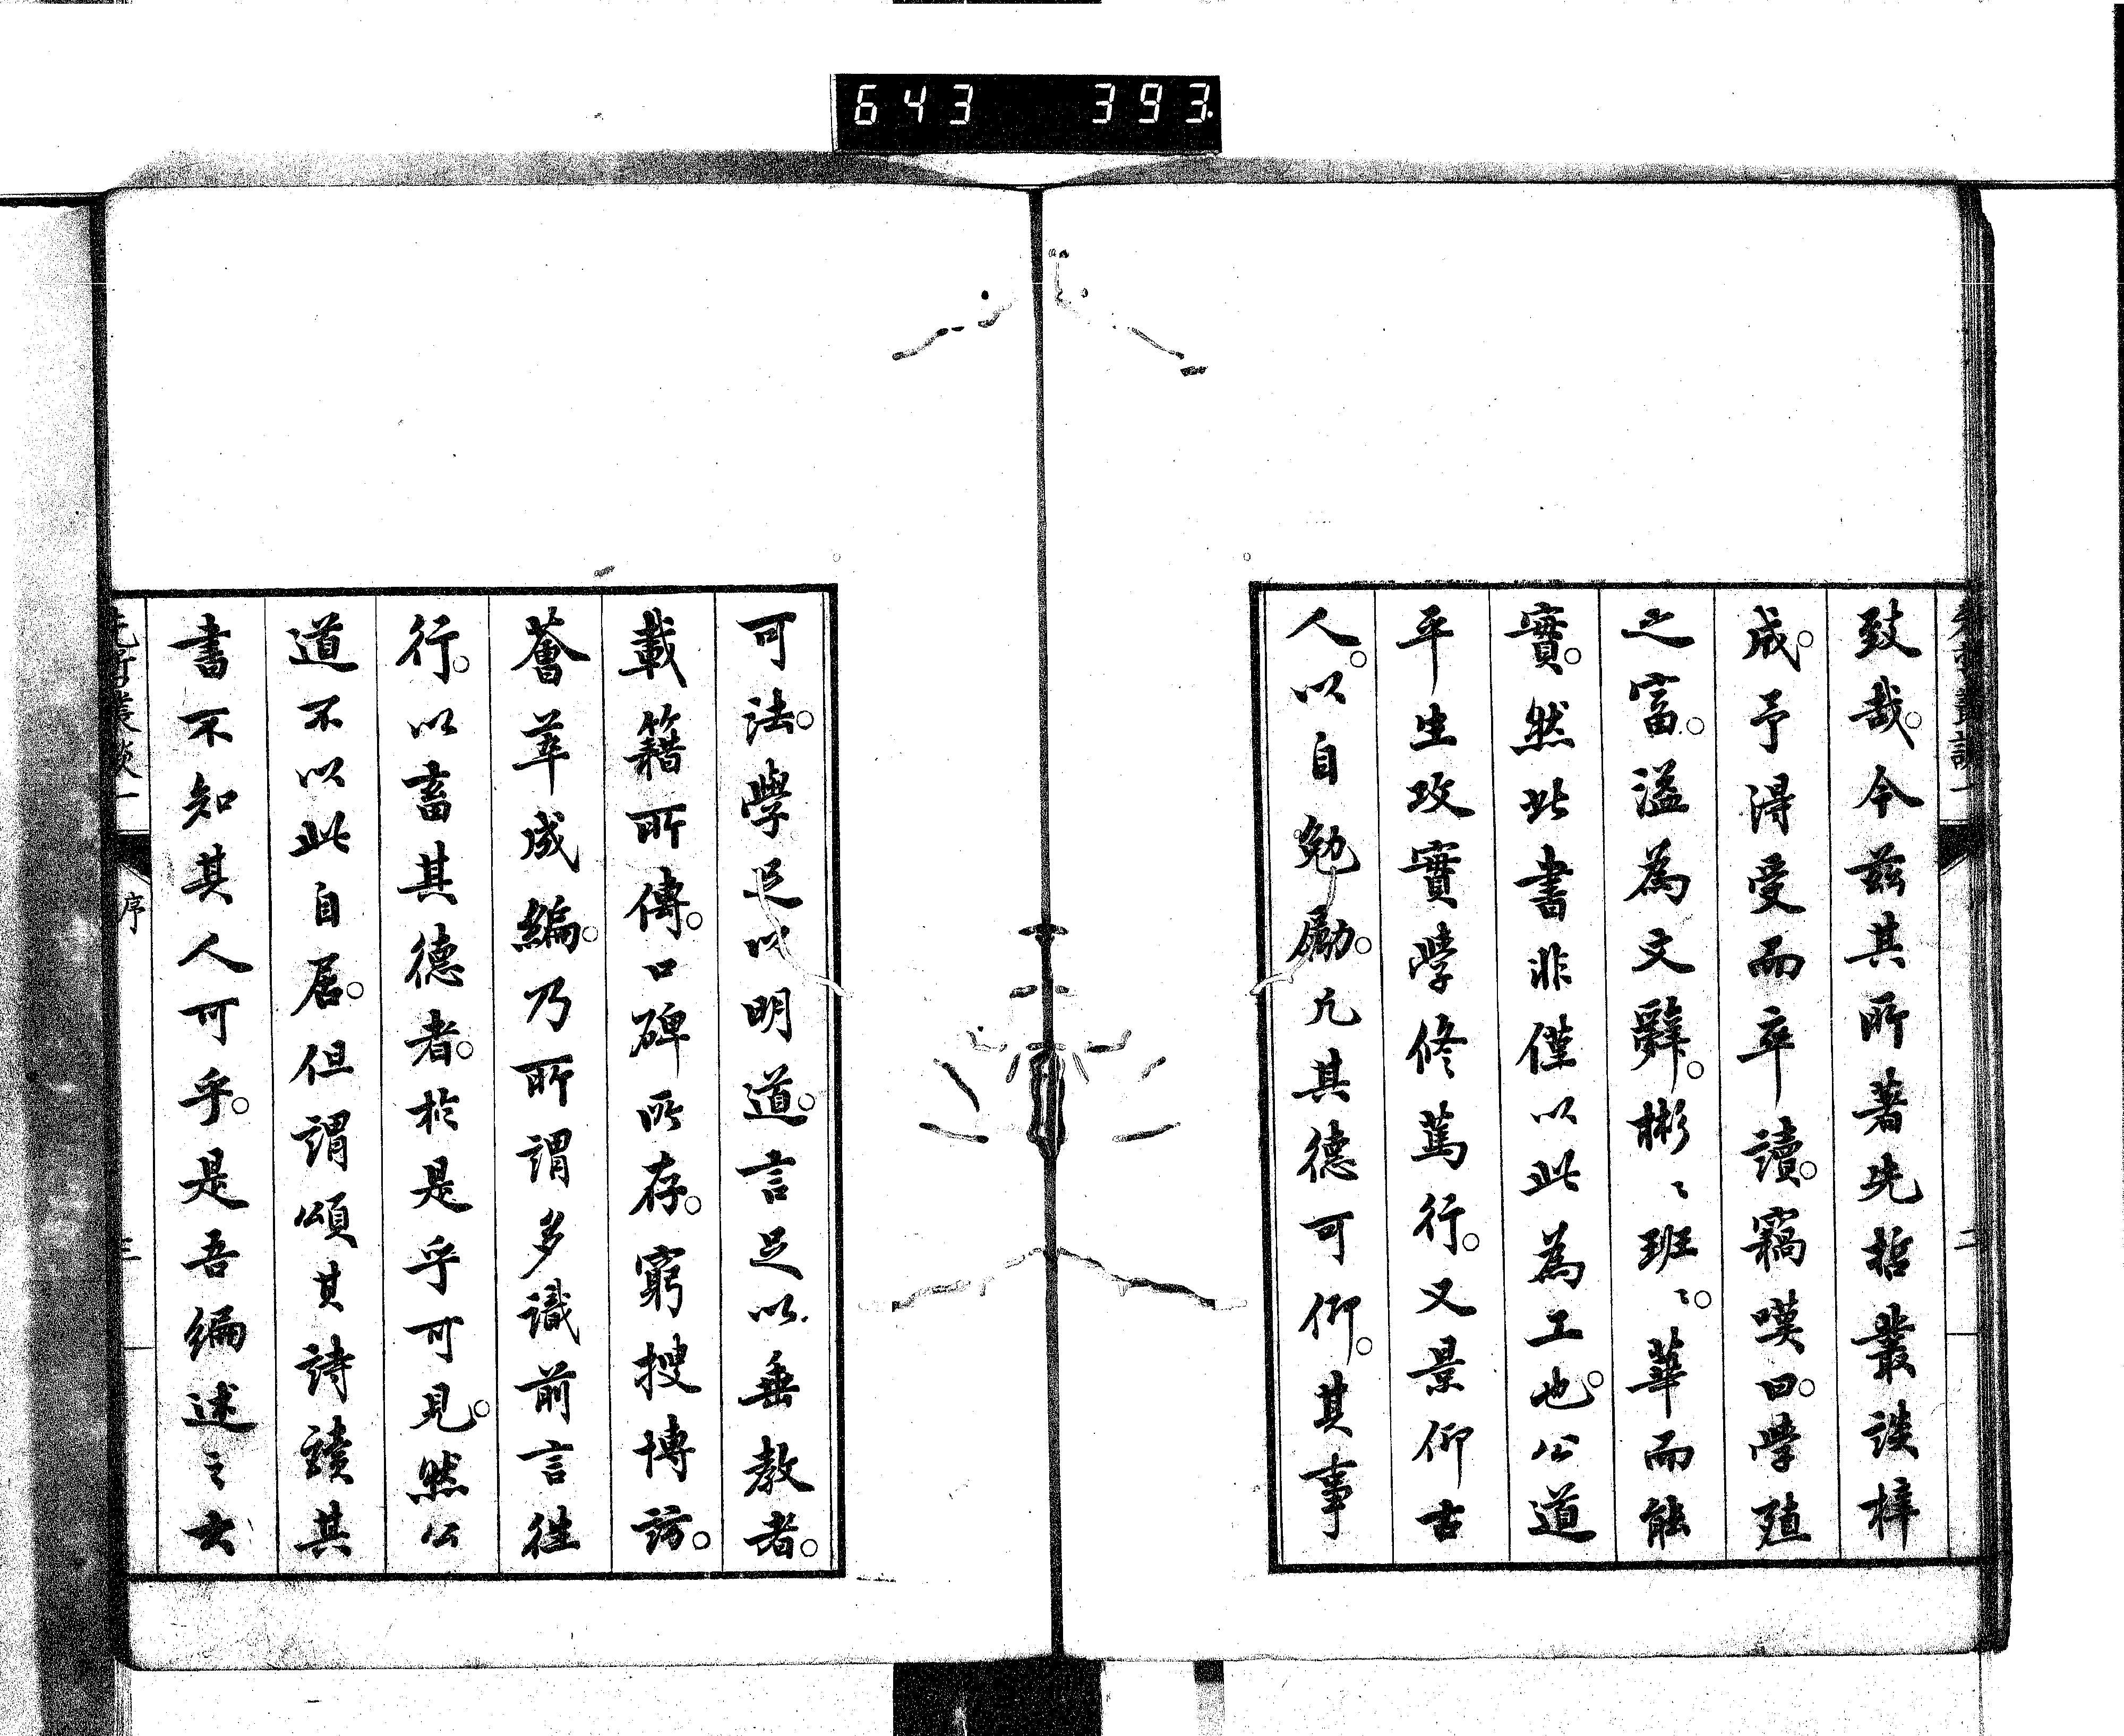 643 393
致哉。今茲其所著先哲叢談梓
成。予得受而卒讀。竊嘆曰。學殖
之富。溢為文辭。彬〻班〻。華而能
實。然此書非僅以此為工也。公道
平生攻實學修篤行。又景仰古
人。以自勉勵。凡其德可仰。其事
可法。學足以明道。言足以垂教者。
載籍所傳。口碑所存。窮搜博訪。
薈萃成編。乃所謂多識前言往
行。以畜其德者。於是乎可見。然公
道不以此自居。但謂頌其詩讀其
書不知其人可乎。是吾編述之大
先哲叢談一
序
三
先哲叢談一
二